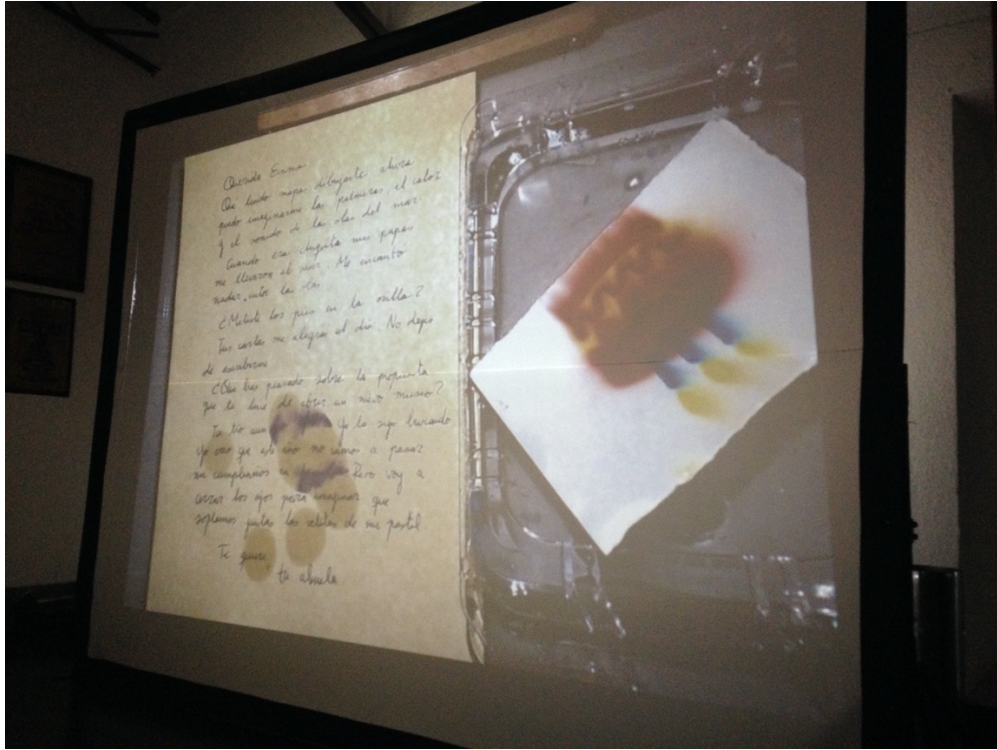 Querida Emma
Que lindo mapa dibujaste ahora
puedo imaginarme las palmeras, el calor
y el sonido de las olas del mar
Cuando era chiquita mis papás
me llevaron al mar. Me encantó
nadar entre las
¿Metiste los pies en la orilla?
Tus cartas me alegran el día. No dejes
de escribirme
¿Qué has pensado sobre la propuesta
que te hice de abrir un nuevo museo?
Tu tío aun Yo la sigo buscando
Yo creo que este año no vamos a pasar
mi cumpleaños Pero voy a
cerrar los ojos para imaginar que
soplamos juntas las velitas de mi pastel
Te quiere,
tu abuela